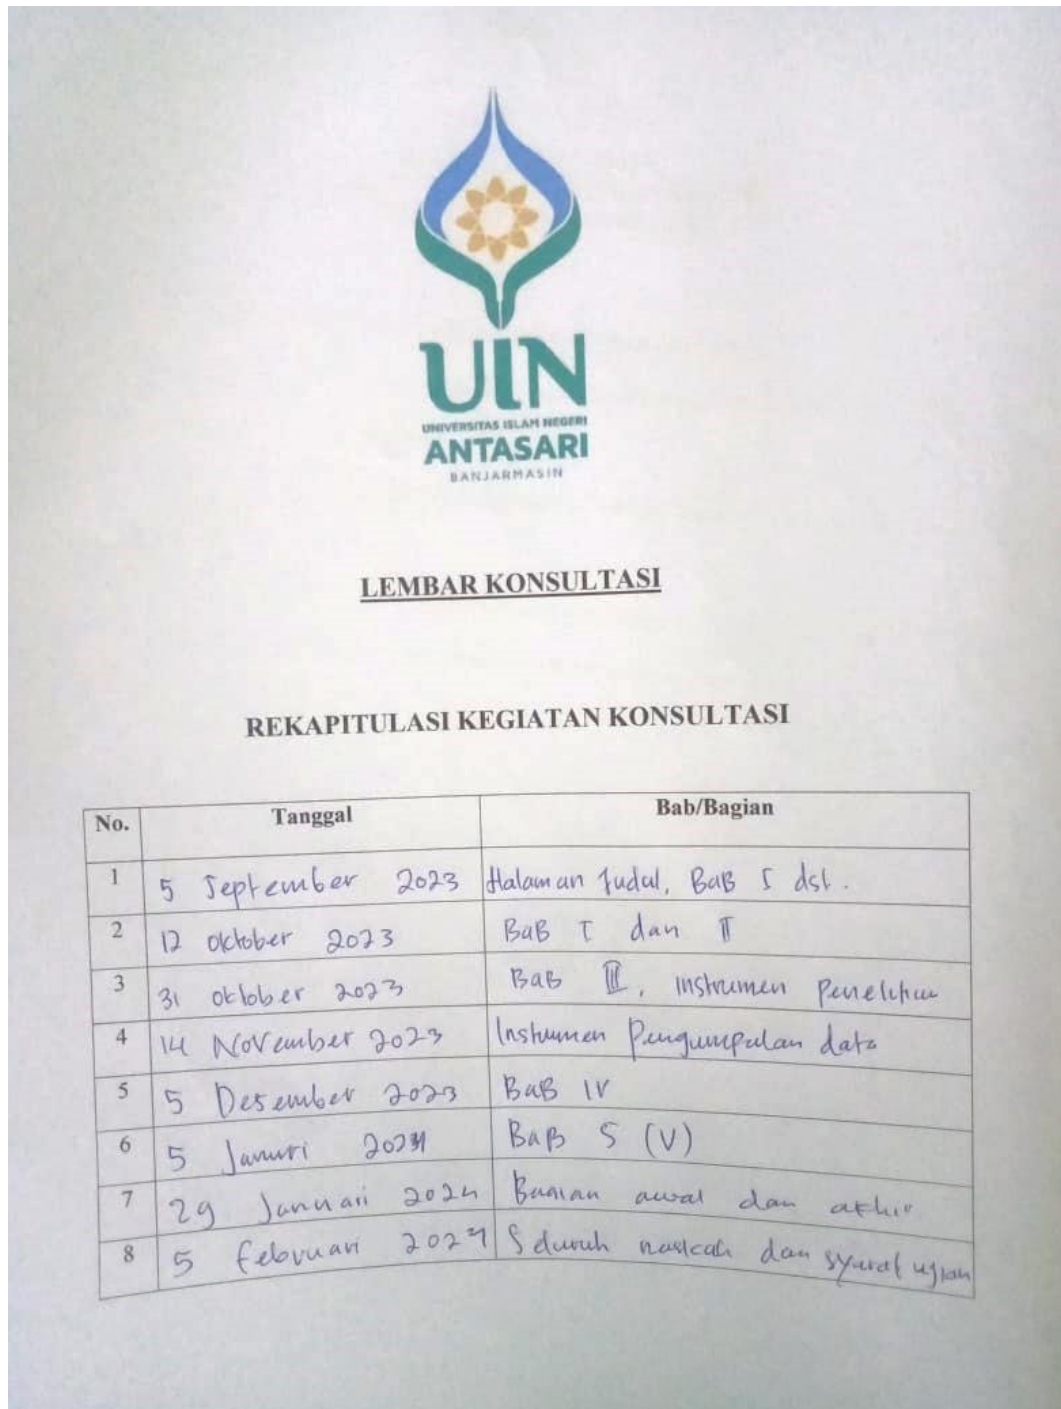 UIN
UNIVERSITAS ISLAM NEGERI
ANTASARI
BANJARMASIN
LEMBAR KONSULTASI
REKAPITULASI KEGIATAN KONSULTASI
No. Tanggal Bab/Bagian
1 5 September 2023 Halaman Judul, BaB I dst.
2 12 oktober 2023 BaB I dan II
3 31 oktober 2023 BaB III, instrumen Penelitian
4 14 November 2023 Instrumen Pengumpulan data
5 5 Desember 2023 BaB IV
6 5 Januri 2024 BaB 5 (V)
7 29 Januari 2024 Bagian awal dan akhir
8 5 Februari 2024 Seluruh naskah dan syarat ujian